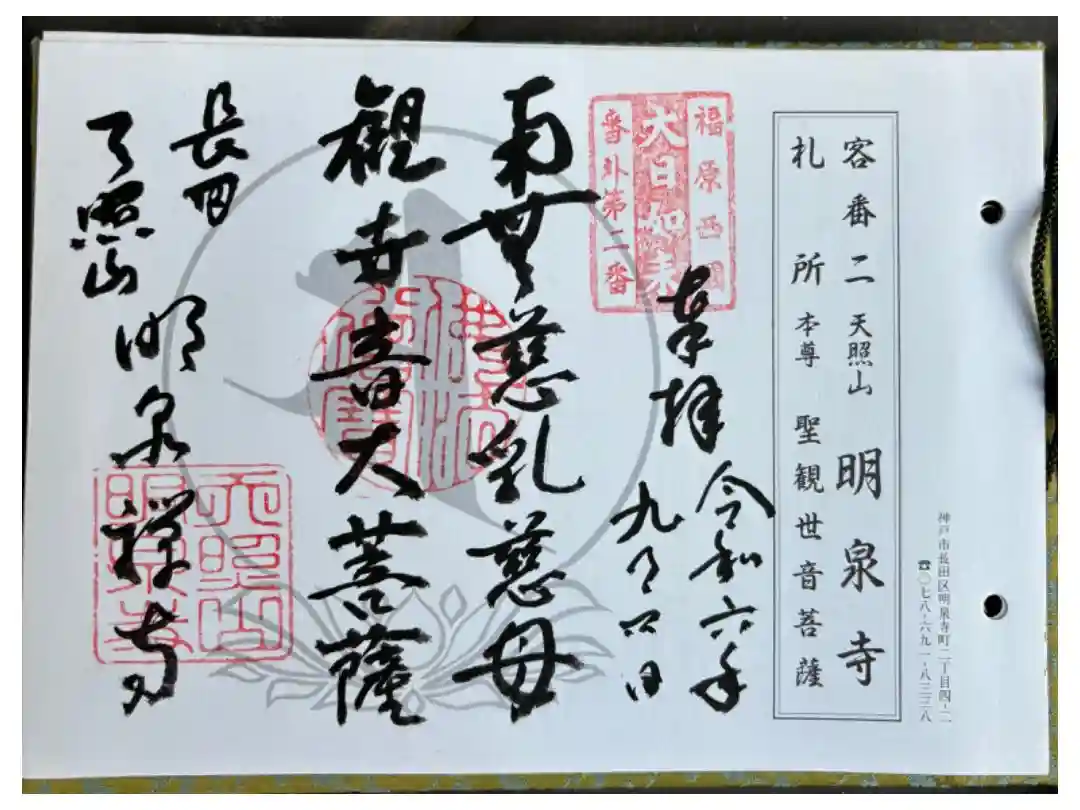 神戸市長田区明泉寺町二丁目四-二
☎〇七八-六九一-八三二八
客番二 天照山 明泉寺
札所 本尊 聖観世音菩薩
福原西國
大日如来
番外第二番
奉拝 令和六年
九月 日
南無慈乳慈母
観世音大菩薩
佛法
僧寶
長田
天照山 明泉禅寺
天照山
明泉寺